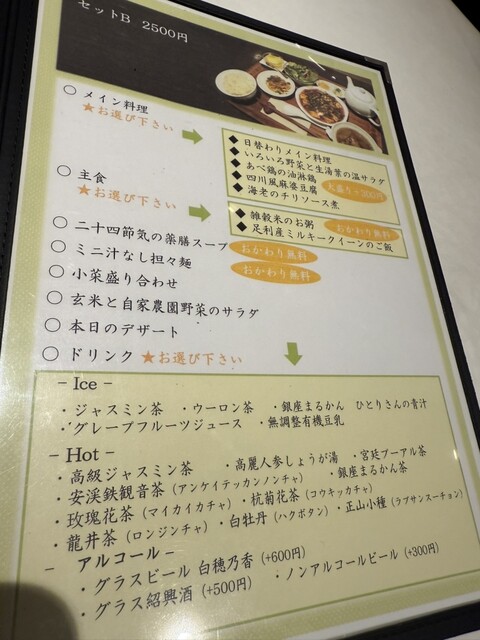 セットB 2500円
○ メイン料理
★お選び下さい
◆ 日替わりメイン料理
◆ いろいろ野菜と生湯葉の温サラダ
◆ あべ鶏の油淋鶏
◆ 四川風麻婆豆腐 大盛り+300円
◆ 海老のチリソース煮
○ 主食
★お選び下さい
◆ 雑穀米のお粥 おかわり無料
◆ 足利産ミルキークイーンのご飯
○ 二十四節気の薬膳スープ おかわり無料
○ ミニ汁なし担々麺 おかわり無料
○ 小菜盛り合わせ
○ 玄米と自家農園野菜のサラダ
○ 本日のデザート
○ ドリンク ★お選び下さい
- Ice -
・ジャスミン茶 ・ウーロン茶 ・銀座まるかん ひとりさんの青汁
・グレープフルーツジュース ・無調整有機豆乳
- Hot -
・高級ジャスミン茶 ・高麗人参しょうが湯 ・宮廷プーアル茶
・安渓鉄観音茶 (アンケイテッカンノンチャ) ・銀座まるかん茶
・玫瑰花茶 (マイカイカチャ) ・杭菊花茶 (コウキッカチャ)
・龍井茶 (ロンジンチャ) ・白牡丹 (ハクボタン) ・正山小種 (ラプサンスーチョン)
- アルコール -
・グラスビール 白穂乃香 (+600円)
・グラス紹興酒 (+500円) ・ノンアルコールビール (+300円)